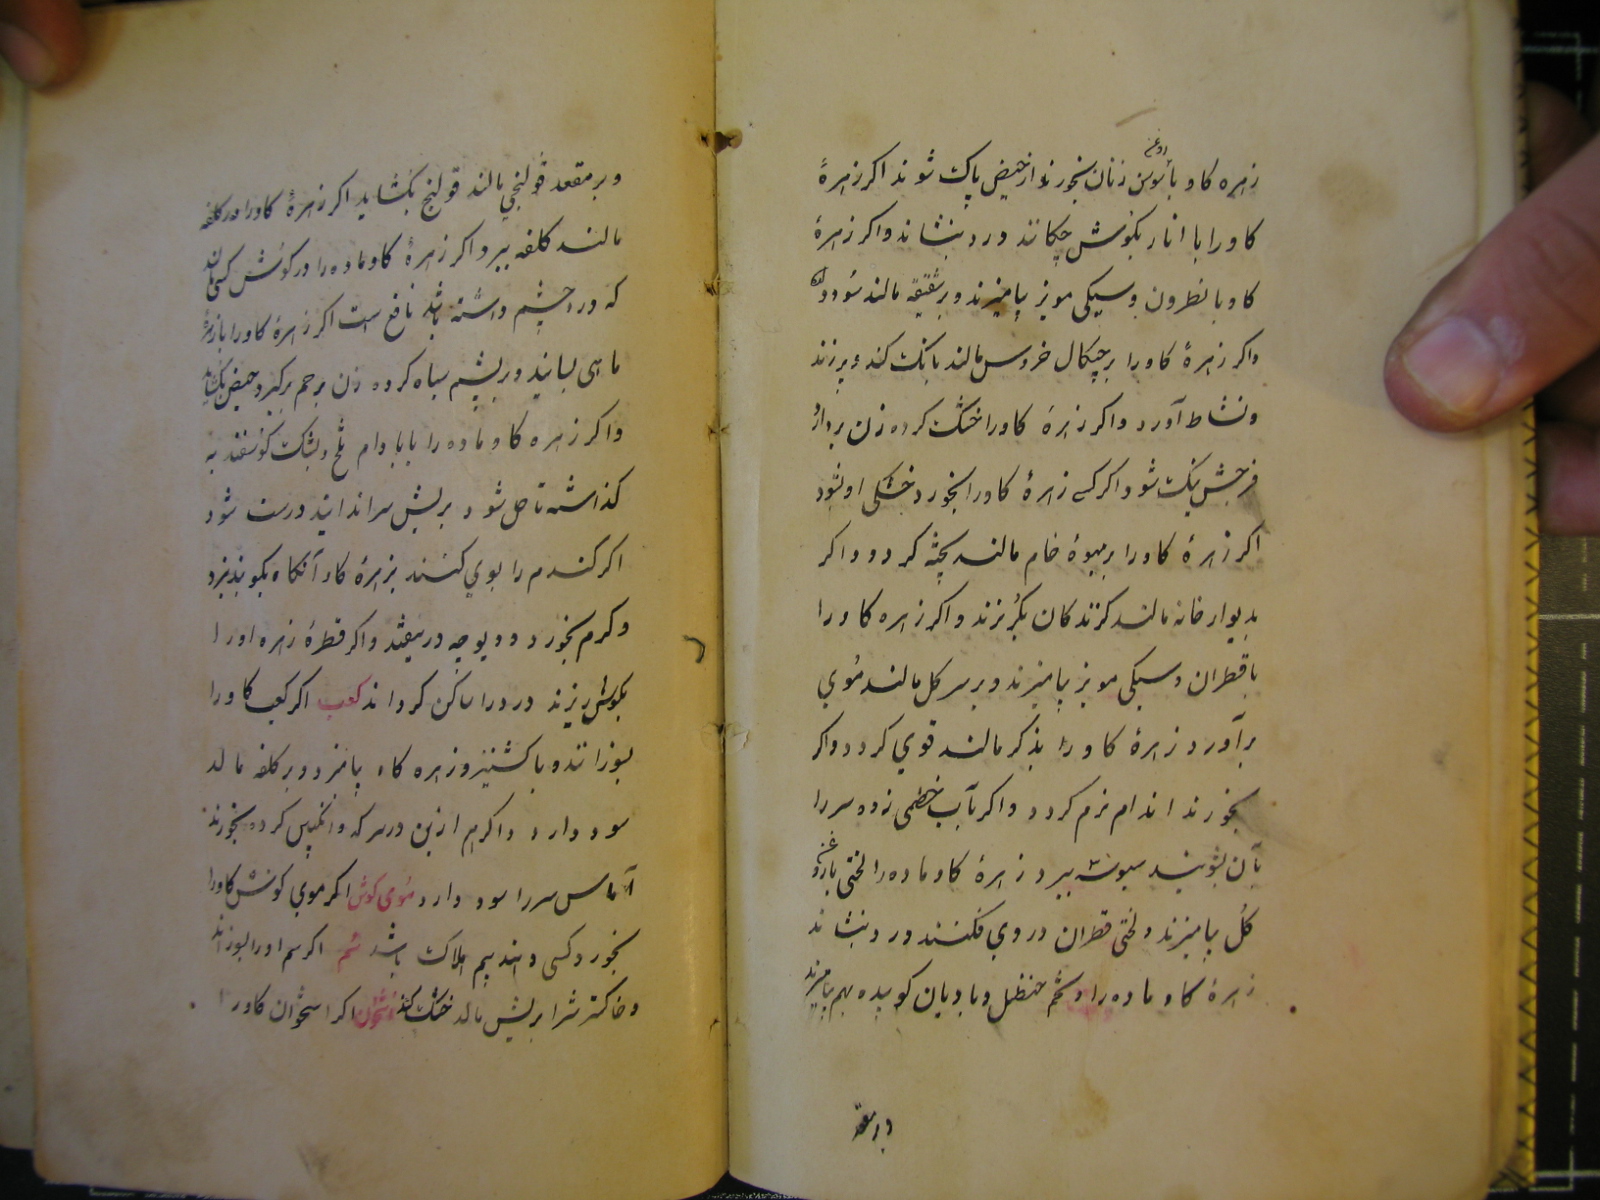 زهره کاو با روغن سوسن زنان بخورند از حیض پاک شوند اکر زهرهٔ
کاو را با انار بکوش چکانند درد بنشاند واکر زهرهٔ
کاو با نطرون وسیکی مویز بیامیزند وبر شقیقه مالند سود دهد
واکر زهرهٔ کاو را بر چنکال خروس مالند بانک کند وپر زند
ونشاط آورد واکر زهرهٔ کاو را خشک کرده زن بردارد
فرجش تنک شود اکر کسی زهرهٔ کاو را بخورد خشکی او شود
اکر زهرهٔ کاو را بر میوهٔ خام مالند پخته کردد واکر
بدیوار خانه مالند کزندکان بکریزند واکر زهره کاو را
با قطران وسیکی مویز بیامیزند وبر سر کل مالند موی
برآورد زهرهٔ کاو را بذکر مالند قوی کردد واکر
بخورند اندام نرم کردد واکر بآب خطمی زده سر را
بآن بشویند سبوسه ببرد زهرهٔ کاو ماده را لختی با روغن
کل بیامیزند ولختی قطران در وی فکنند درد بنشاند
زهرهٔ کاو ماده را وتخم حنظل وبادیان کوبیده بهم بیامیزند
وبر مقعد
وبر مقعد قولنجی مالند قولنج بکشاید اکر زهرهٔ کاو را بر کلفه
مالند کلفه ببرد اکر زهرهٔ کاو ماده را در کوش کسی مالند
که درد چشم داشته باشد نافع است اکر زهرهٔ کاو را با زهرهٔ
ماهی بسایند وبر پشم سیاه کرده زن برحم برکیرد حیض بکشاید
واکر زهره کاو ماده را با بادام تلخ وپشک کوسفند به
کذاشته تا حل شود بریش سر اندایند درست شود
اکر کندم را بوی کنند بزهرهٔ کاو آنکاه بکوبند نیزد
وکرم نخورد ودیوچه در نیفتد واکر قطرهٔ زهره او را
بکوش ریزند درد را ساکن کرداند کعب اکر کعب کاو را
بسوزانند وبا کشنیز وزهره کاو بیامیزد وبر کلفه مالد
سود دارد واکر هم ازین در سرکه وانکبین کرده بخورند
آماس سر را سود دارد موی کوش اکر موی کوش کاو را
بخورد کسی دهند بیم هلاک باشد سم اکر سم او را بسوزانند
وخاکسترش را بریش مالد خشک کند استخوان اکر استخوان کاو را